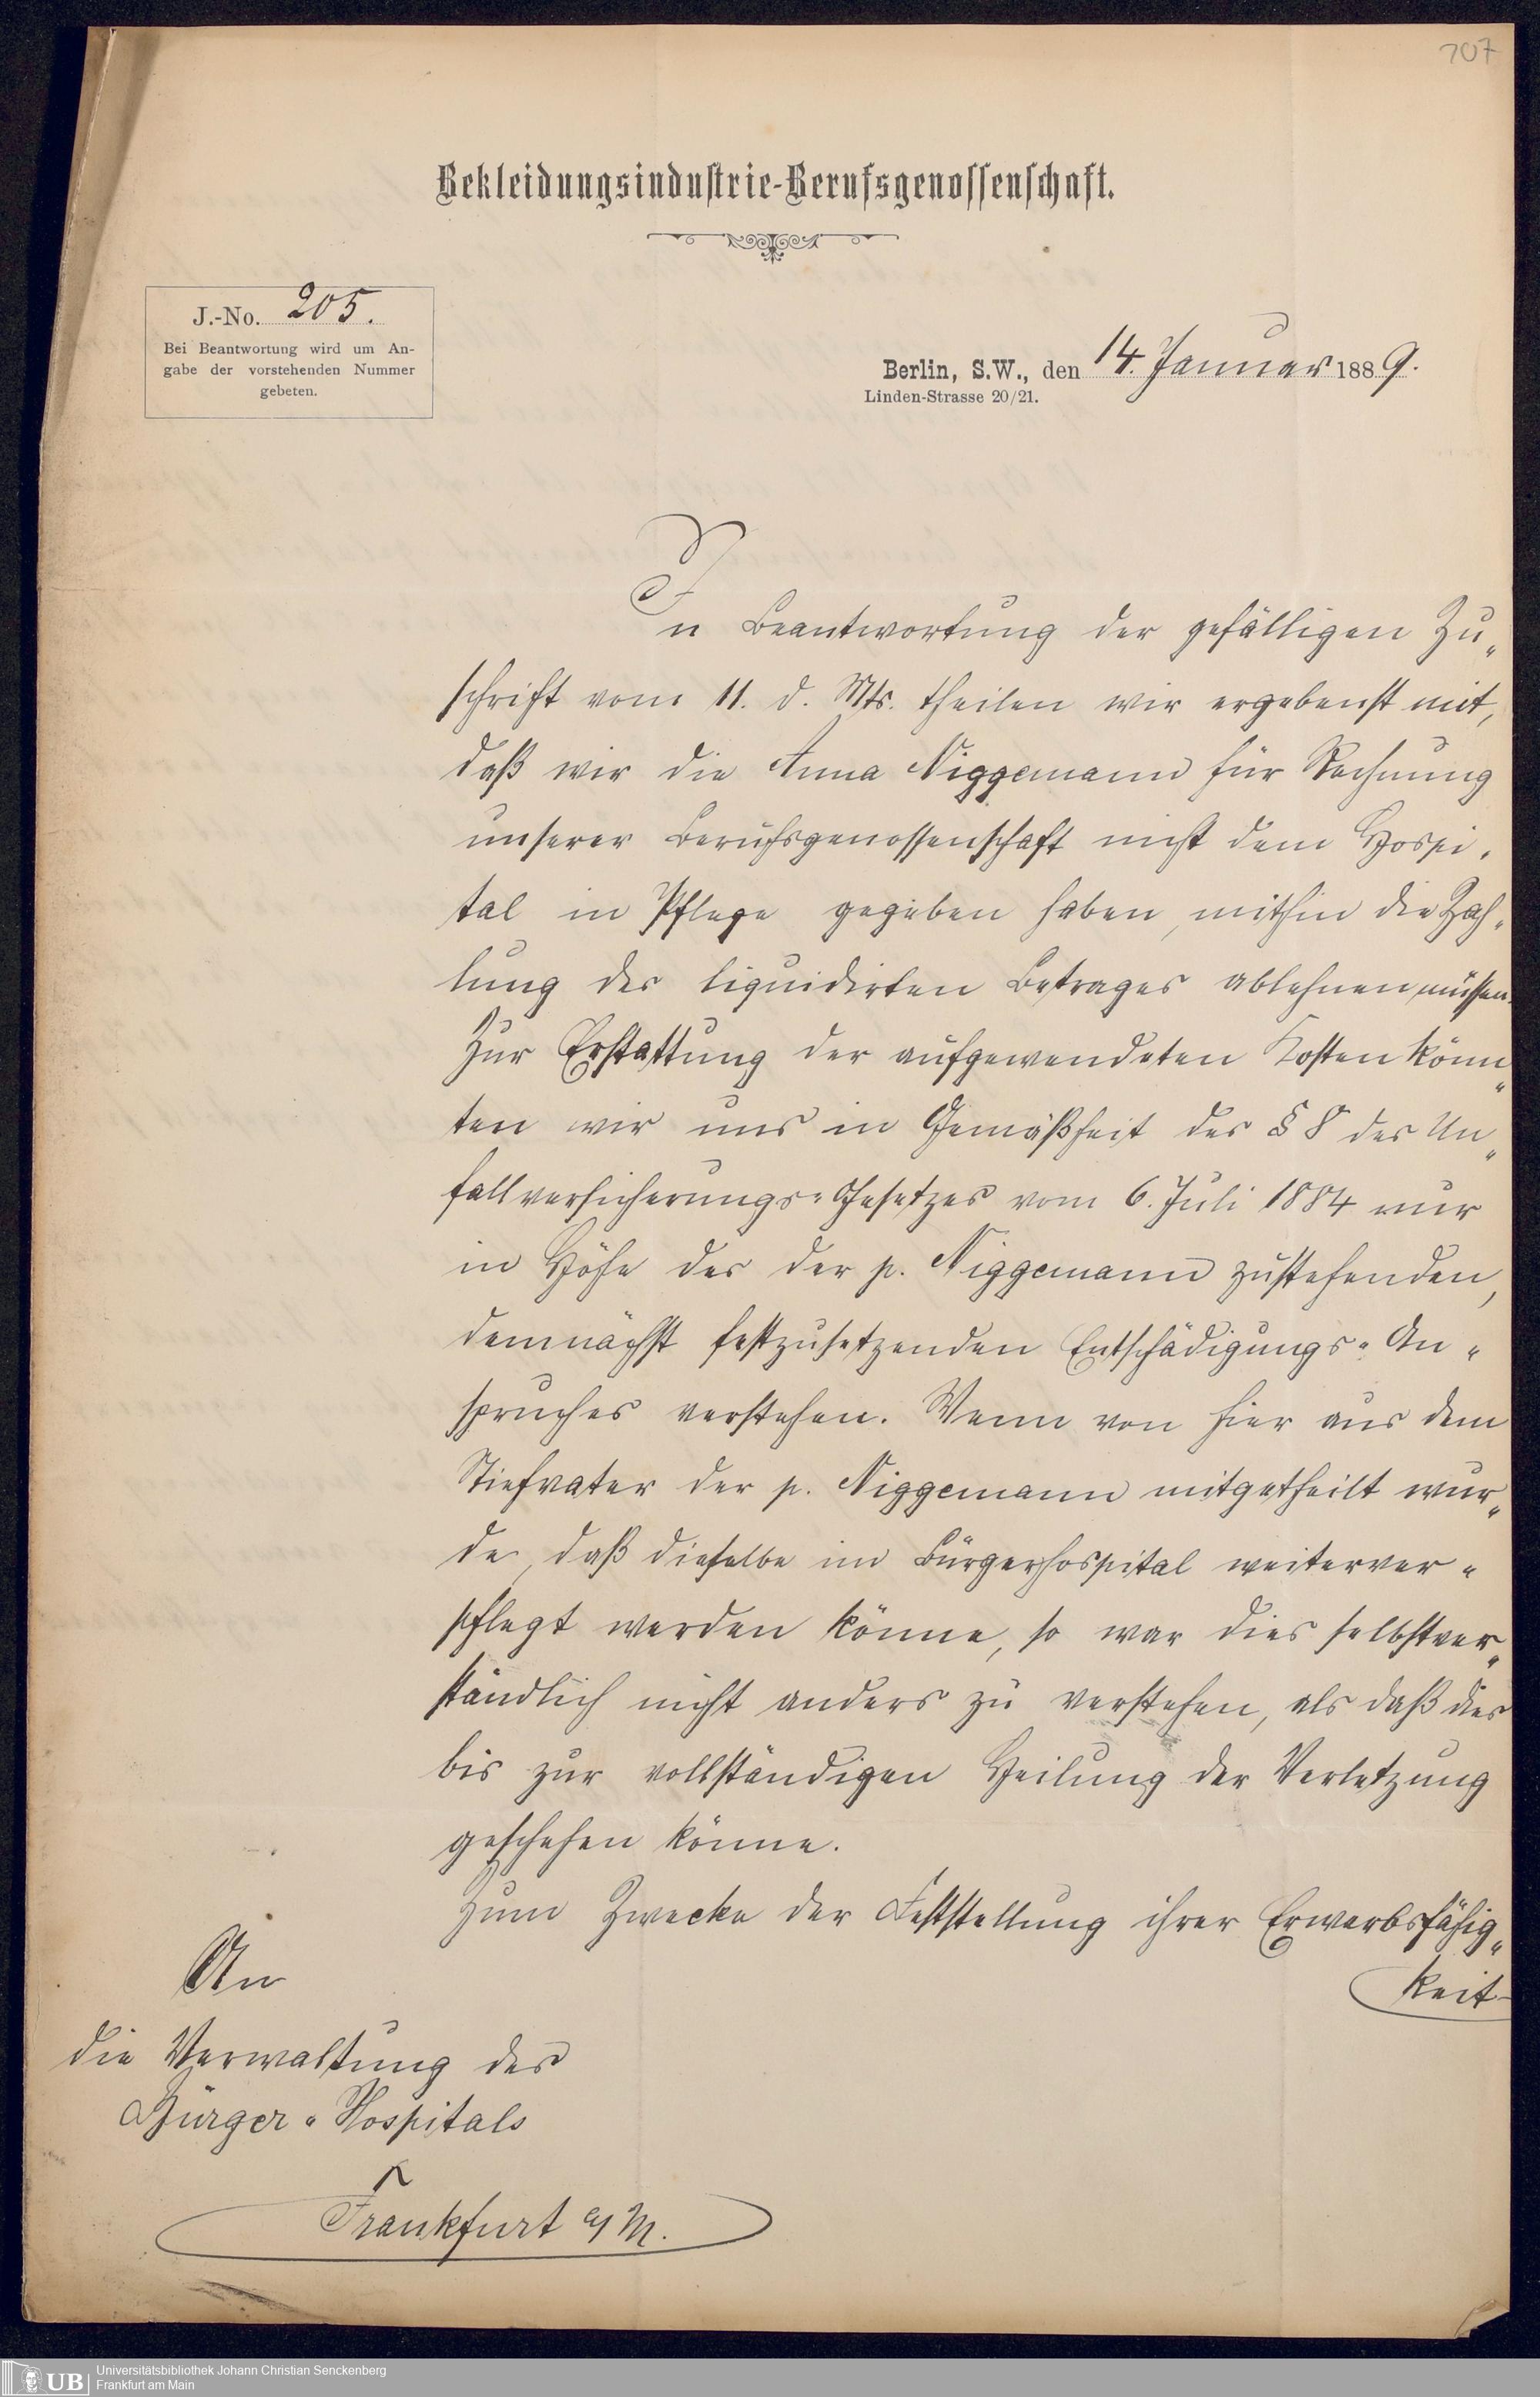 707
Bekleidungsindustrie-Berufsgenossenschaft.
J.-No. 205.
Bei Beantwortung wird um An-
gabe der vorstehenden Nummer
gebeten.
Berlin, S.W., den 14. Januar 1889.
Linden-Strasse 20/21.
In Beantwortung der gefälligen Zu„
schrift vom 11. d. Mts. theilen wir ergebenst mit,
daß wir die Anna Niggemann für Rechnung
unserer Berufsgenossenschaft nicht dem Hospi„
tal in Pflege gegeben haben, mithin die Zah„
lung des liquidirten Betrages ablehnen müssen.
Zur Erstattung der aufgewendeten Kosten könn„
ten wir uns in Gemäßheit des § 8 des Un„
fallversicherungs-Gesetzes vom 6. Juli 1884 nur
in Höhe des der p. Niggemann zustehenden,
demnächst festzusetzenden Entschädigungs-An„
spruches verstehen. Wenn von hier aus dem
Stiefvater der p. Niggemann mitgetheilt wur„
de, daß dieselbe im Bürgerhospital weiterver„
pflegt werden könne, so war dies selbstver„
ständlich nicht anders zu verstehen, als daß dies
bis zur vollständigen Heilung der Verletzung
geschehen könne.
Zum Zwecke der Feststellung ihrer Erwerbsfähig„
keit
An
die Verwaltung des
Bürger-Hospitals
Frankfurt a/M.
UB
Universitätsbibliothek Johann Christian Senckenberg
Frankfurt am Main